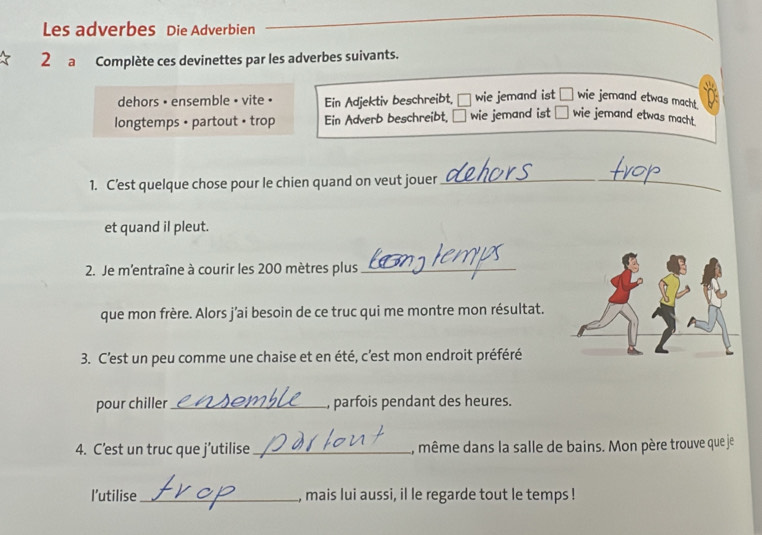 Les adverbes Die Adverbien
2 a Complète ces devinettes par les adverbes suivants.
dehors • ensemble • vite •
longtemps • partout • trop
Ein Adjektiv beschreibt, □ wie jemand ist □ wie jemand etwas macht.
Ein Adverb beschreibt, □ wie jemand ist □ wie jemand etwas macht.
1. C'est quelque chose pour le chien quand on veut jouer dehors trop
et quand il pleut.
2. Je m'entraîne à courir les 200 mètres plus longtemps
que mon frère. Alors j'ai besoin de ce truc qui me montre mon résultat.
3. C'est un peu comme une chaise et en été, c'est mon endroit préféré
pour chiller ensemble, parfois pendant des heures.
4. C'est un truc que j'utilise partout, même dans la salle de bains. Mon père trouve que je
l'utilise trop, mais lui aussi, il le regarde tout le temps !